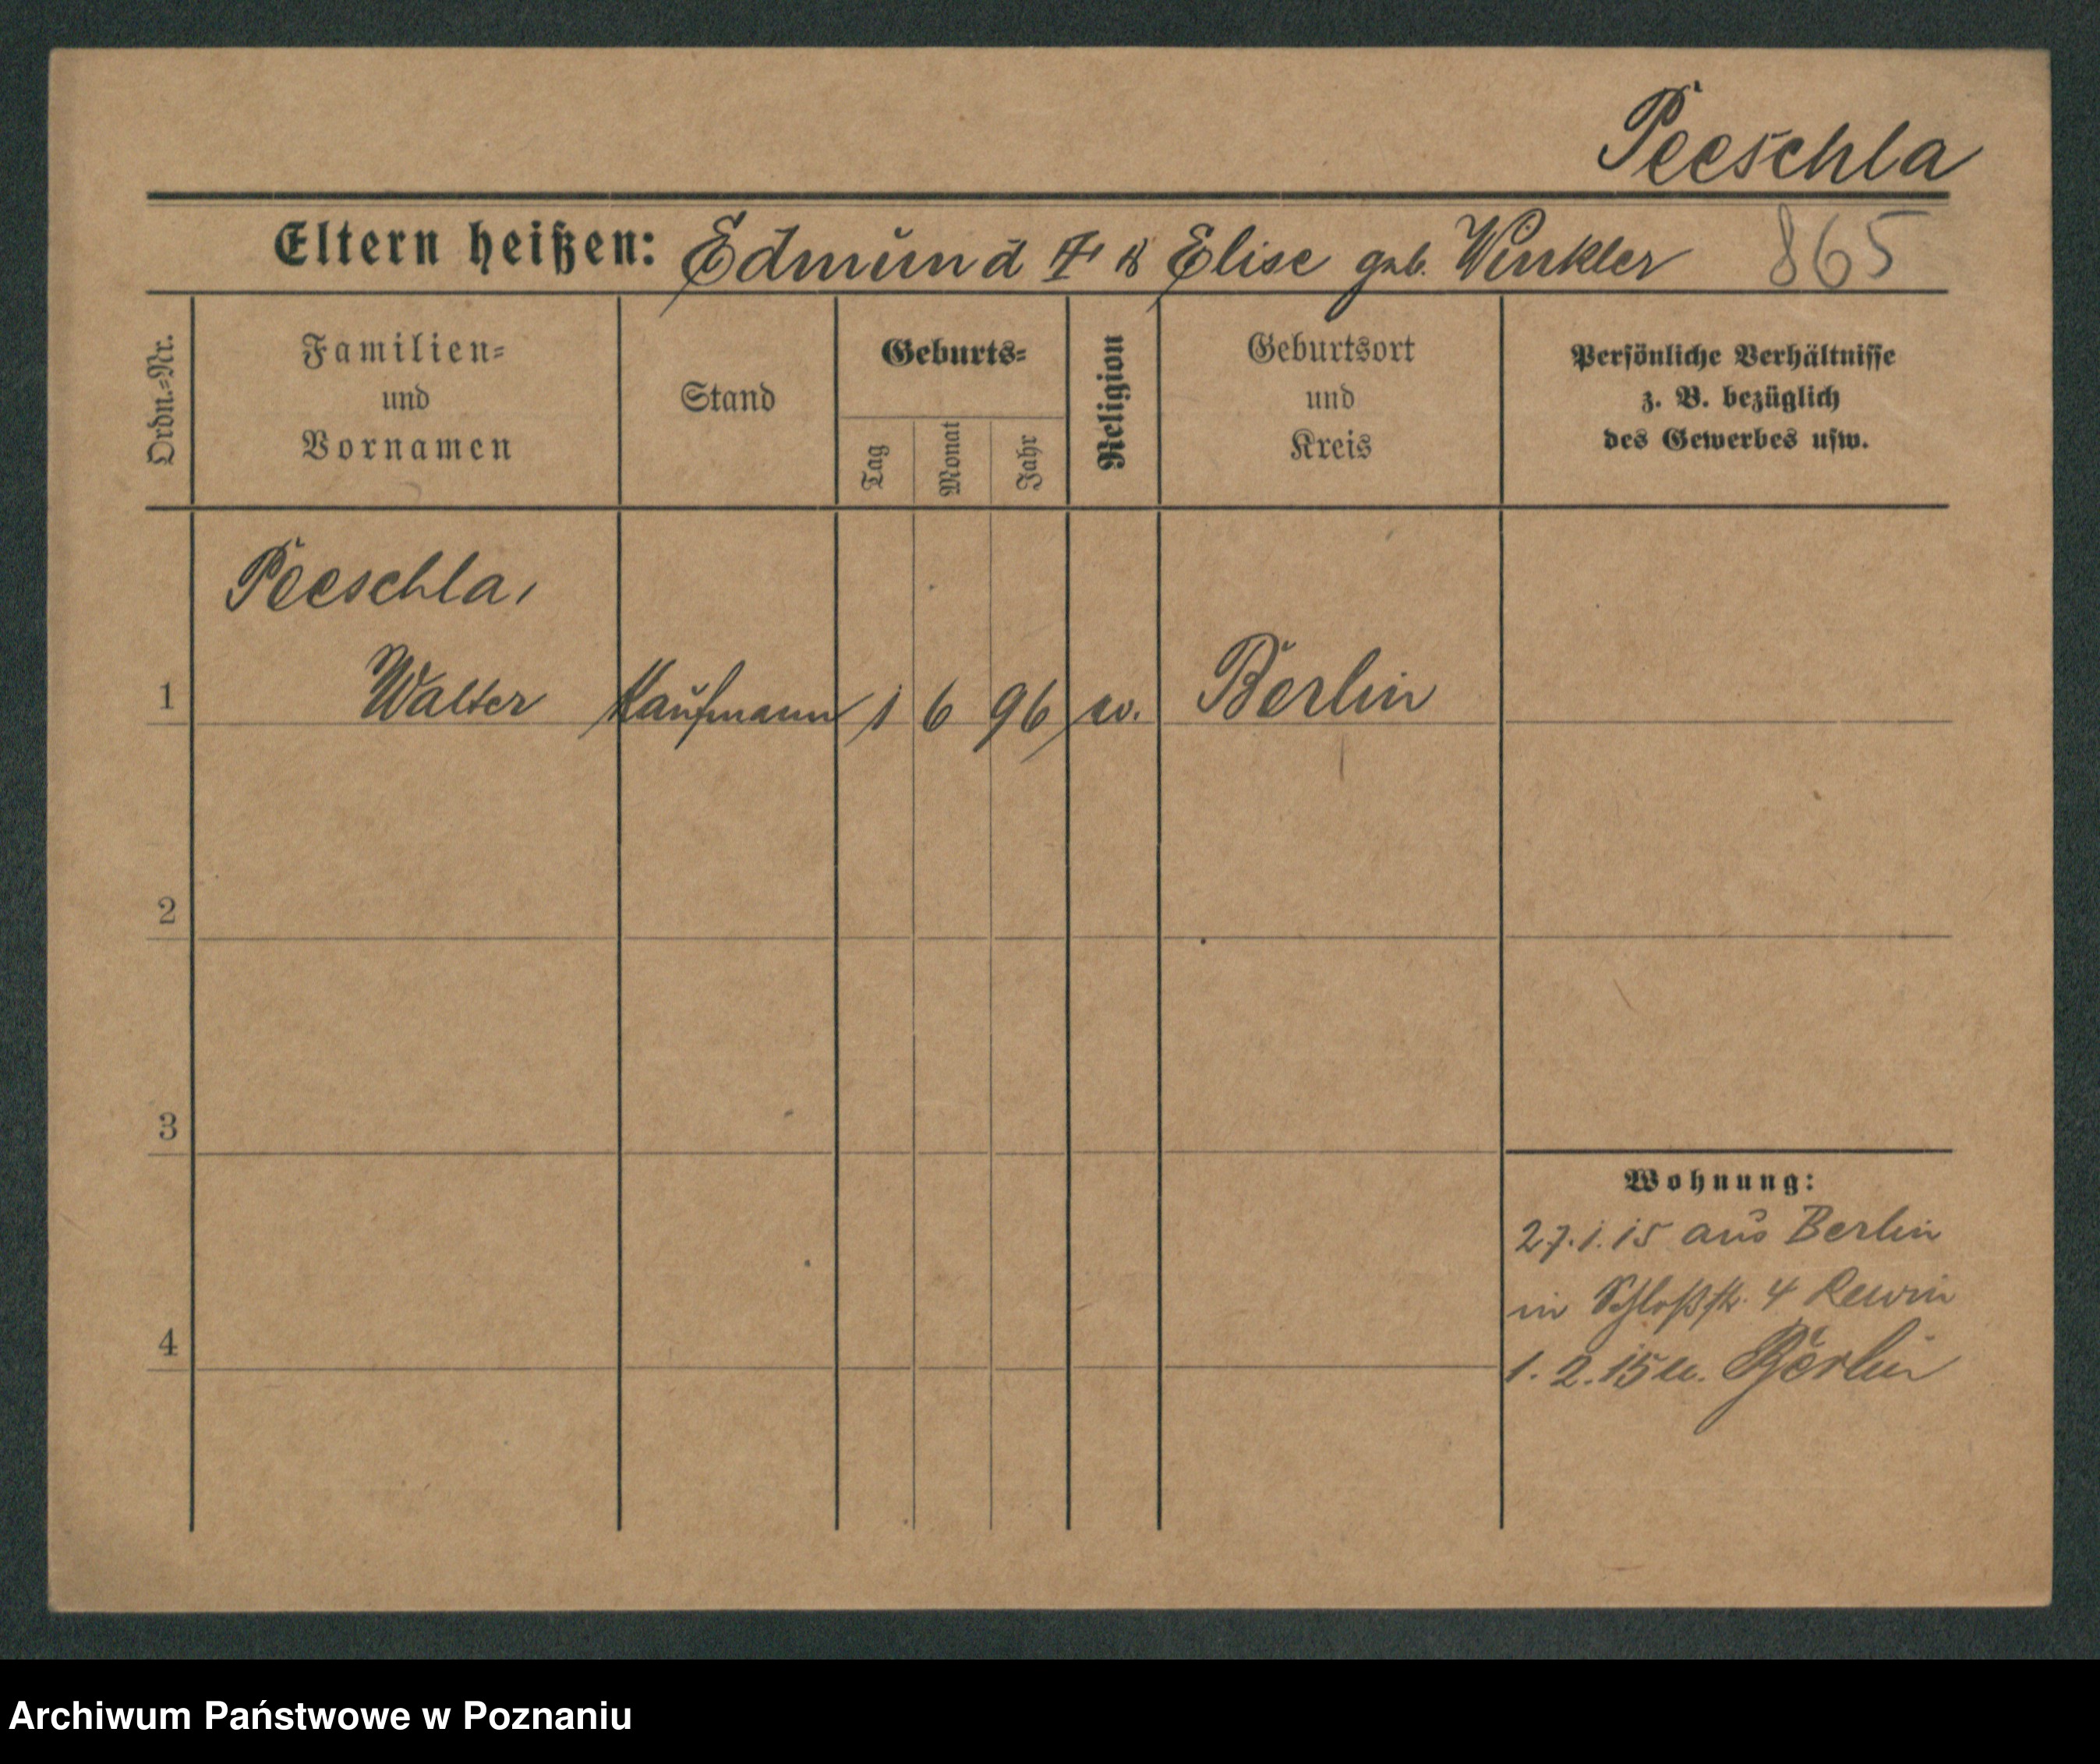 Peeschla
Eltern heißen: Edmund ‡ & Elise geb. Winkler 865
Ordn.=Nr.
Familien=
und
Vornamen
Stand
Geburts=
Tag
Monat
Jahr
Religion
Geburtsort
und
Kreis
Persönliche Verhältnisse
z. B. bezüglich
des Gewerbes usw.
Peeschla,
1 Walter Kaufmann 1 6 96 ev. Berlin
2
3
4
Wohnung:
27.1.15 aus Berlin
in Schloßstr. 4
1. 2. 15 Berlin
Archiwum Państwowe w Poznaniu